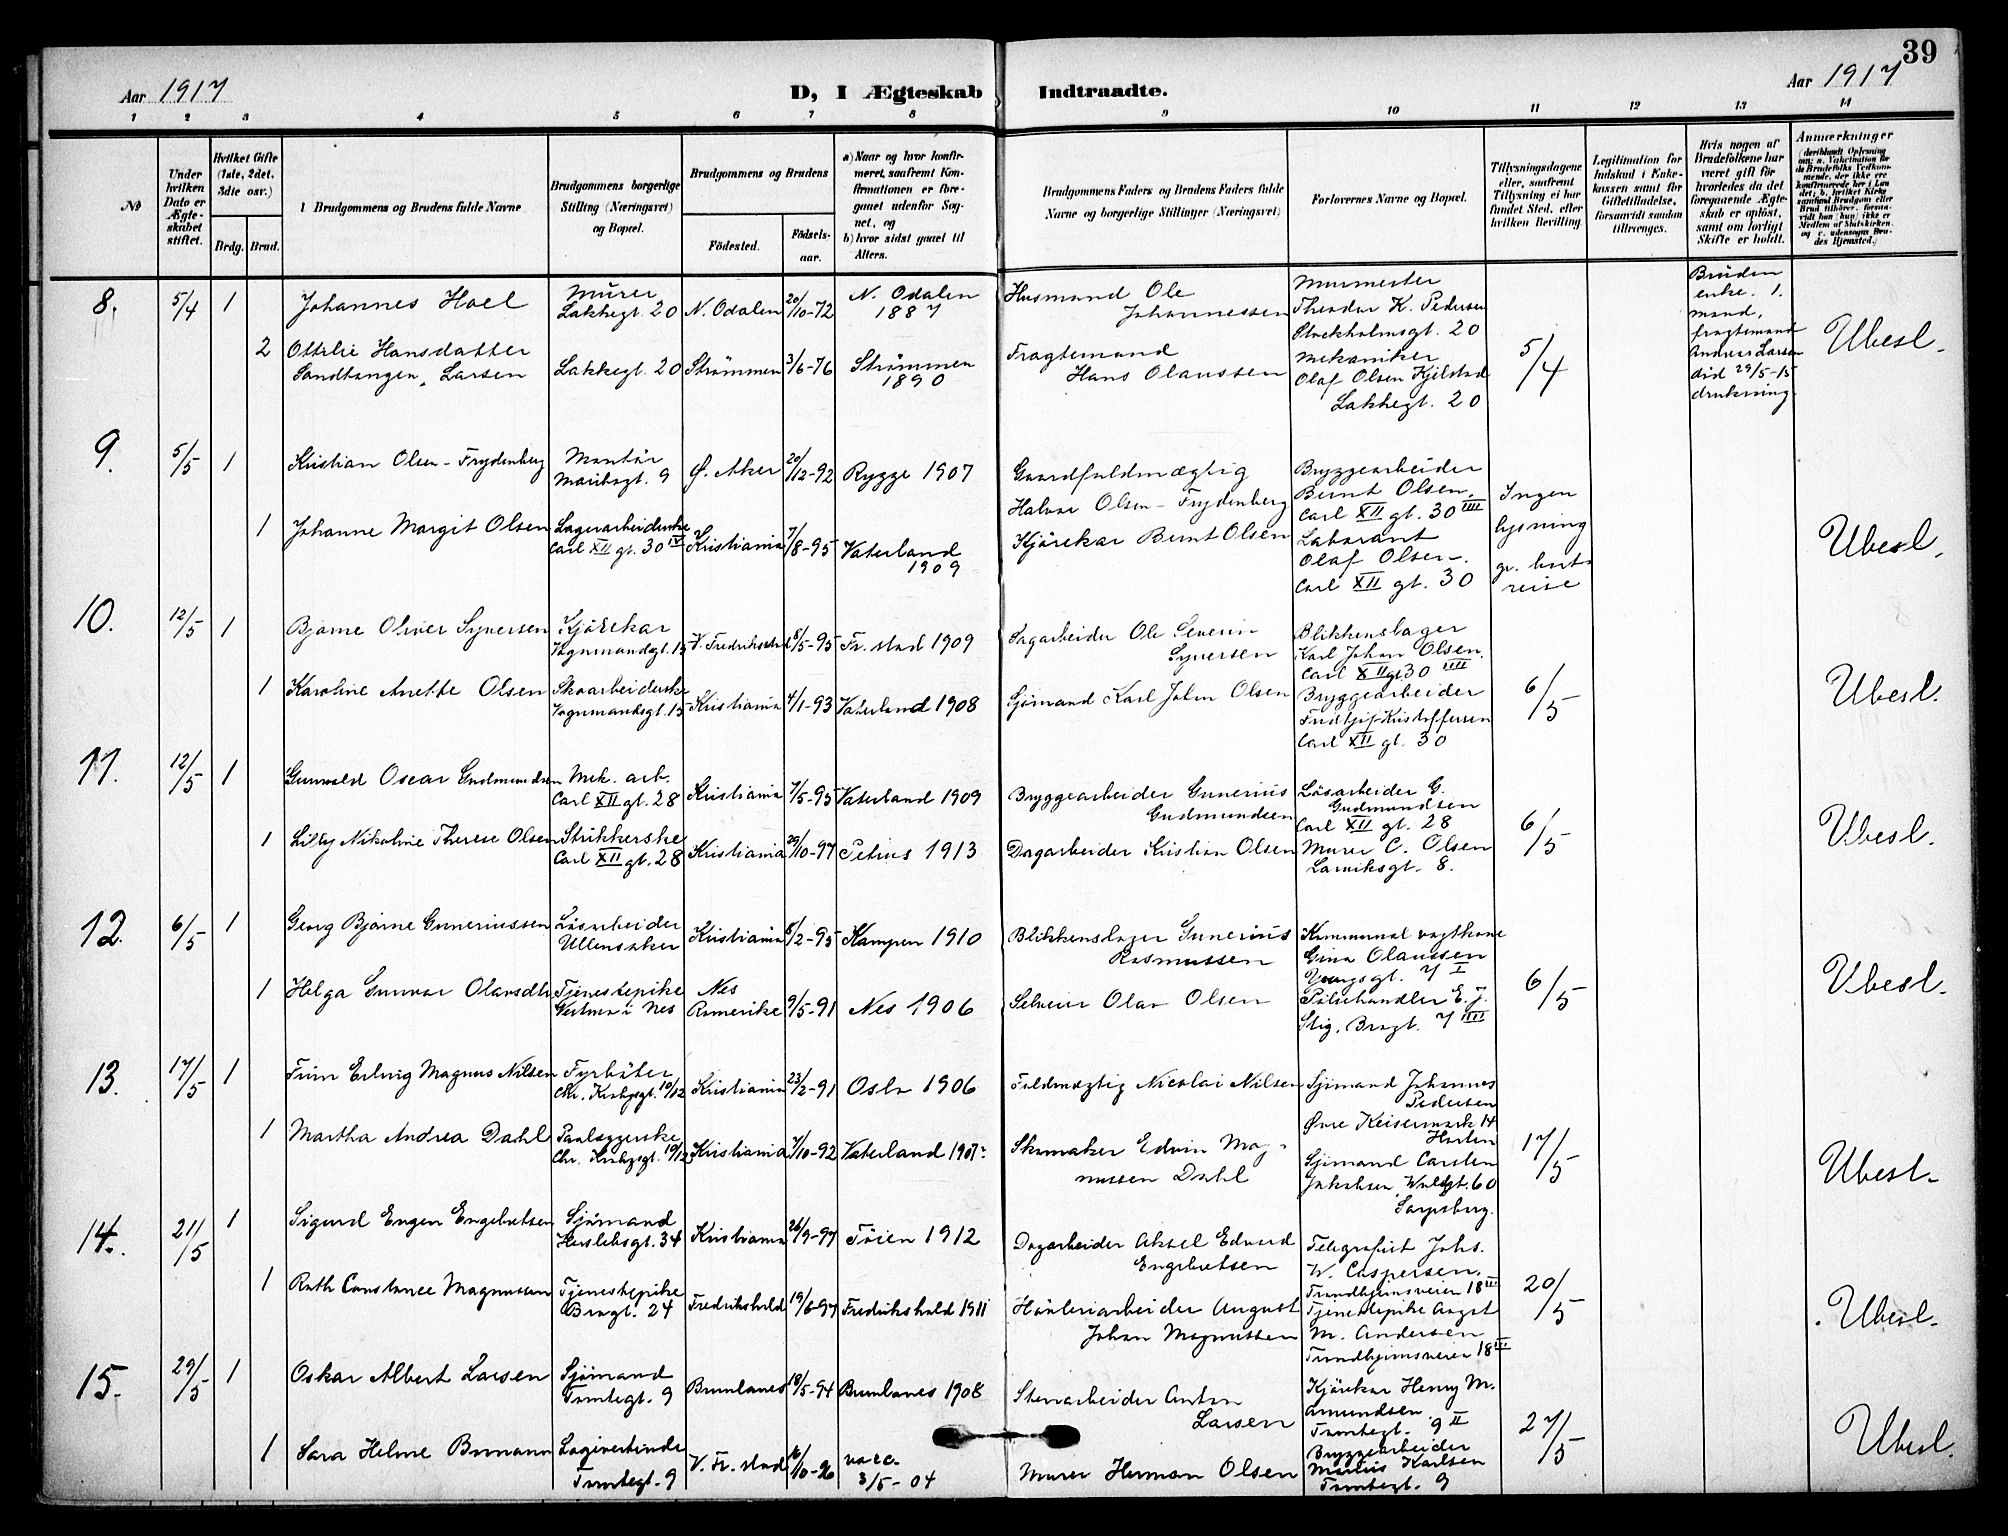 39
Aar 1917
D, I Ægteskab Indtraadte.
Aar 1917
1 2 3 4 5 6 7 8 9 10 11 12 13 14
No
Under hvilken Dato er Ægteskabet stiftet.
Hvilket Gifte (1ste, 2det, 3die osv.)
Brdg. Brud.
Brudgommens og Brudens fulde Navne
Brudgommens borgerlige Stilling (Næringsvei) og Bopæl.
Brudgommens og Brudens
Fødested.
Fødselsaar.
a) Naar og hvor konfirmeret, saafremt Konfirmationen er foregaaet udenfor Sognet, og
b) hvor sidst gaaet til Alters.
Brudgommens Faders og Brudens Faders fulde Navne og borgerlige Stillinger (Næringsvei)
Forlovernes Navne og Bopæl.
Tillysningsdagene eller, saafremt Tillysning ei har fundet Sted, efter hvilken Bevilling
Legitimation for Indskud i Enkekassen samt for Giftetilladelse, forsaavidt saadan tiltrænges.
Hvis nogen af Brudefolkene har været gift før hvorledes da det foregaaende Ægteskab er opløst, samt om lovligt Skifte er holdt.
Anmærkninger
8. 5/4 1 Johannes Hoel
Murer Lakkegt. 20
N. Odalen 20/10-72 N. Odalen 1887
Husmand Ole Johannessen
Murmester Theodor K. Pedersen Stockholmsgt. 20
2 Ottilie Hansdatter Sandtangen, Larsen
Lakkegt. 20 Strømmen 3/6-76 Strømmen 1890
Fragtemand Hans Olaussen
Mekaniker Olaf Olsen Kjelstad Lakkegt. 20
5/4
Bruden enke. 1. mand, fragtemand Andreas Larsen död 29/5-15 drukning.
Ubesl.
9. 5/5 1 Kristian Olsen-Frydenberg
Montör Maribogt. 9
Ø. Aker 20/12-92 Rygge 1907
Gaardfuldmægtig Halvor Olsen-Frydenberg
Bryggearbeider Bernt Olsen, Carl XII gt. 30 IIII
1 Johanne Margit Olsen
Lagerarbeiderske Carl XII gt. 30 IV
Kristiania 7/8-95 Vaterland 1909
Kjörekar Bernt Olsen
Laborant Olaf Olsen. Carl XII gt. 30
Ingen lysning gr. bortreise
Ubesl.
10. 12/5 1 Bjarne Oliver Syversen
Kjörekar Vognmandsgt. 15
V. Fredrikstad 8/5-95 Fr.stad 1909
Sagarbeider Ole Severin Syversen
Blikkenslager Karl Johan Olsen. Carl XII gt. 30 IIII
1 Karoline Anette Olsen
Skoarbeiderske Vognmandsgt. 15
Kristiania 4/1-93 Vaterland 1908
Sjömand Karl Johan Olsen
Bryggearbeider Fridtjof Kristoffersen Carl XII gt. 30
6/5
Ubesl.
11. 12/5 1 Gunvald Oscar Gudmundsen
Mek. arb. Carl XII gt. 28
Kristiania 7/5-95 Vaterland 1909
Bryggearbeider Gunerius Gudmundsen
Lösarbeider G. Gudmundsen Carl XII gt. 28
1 Lilly Nikoline Therese Olsen
Strikkerske Carl XII gt. 28
Kristiania 29/10-97 Petrus 1913
Dagarbeider Kristian Olsen
Murer C. Olsen Larviksgt. 8.
6/5
Ubesl.
12. 6/5 1 Georg Bjarne Guneriussen
Lösarbeider Ullensaker
Kristiania 8/2-95 Kampen 1910
Blikkenslager Gunerius Rasmussen
Kommunal vagtkone Gina Olaussen Youngsgt. 7 I
1 Helga Gunvor Olavsdtr
Tjenestepike Vestmo i Nes
Nes Romerike 9/5-91 Nes 1906
Selveier Olav Olsen
Pölsehandler E. J. Stig. Brogt. 7 IIII
6/5
Ubesl.
13. 17/5 1 Finn Erling Magnus Nilsen
Fyrböter Chr. Krohgsgt. 10/12
Kristiania 23/2-91 Oslo 1906
Fuldmægtig Nicolai Nilsen
Sjömand Johannes Pedersen Øvre Keisermark 14 Horten
1 Martha Andrea Dahl
Paalæggerske Chr. Krohgsgt. 10/12
Kristiania 7/10-92 Vaterland 1907
Skomaker Edvin Magnussen Dahl
Sjömand Carsten Jakobsen 60 Sarpsborg.
17/5
Ubesl.
14. 21/5 1 Sigurd Eugen Engebretsen
Sjömand Herslebsgt. 34
Kristiania 26/9-97 Töien 1912
Dagarbeider Aksel Edvard Engebretsen
Telegrafist Johs. W. Caspersen. Trondhjemsveien 18 III
1 Ruth Constance Magnussen
Tjenestepike Brogt. 24
Fredrikshald 19/6-97 Fredrikshald 1911
Høvleriarbeider August Johan Magnussen
Tjenestepike Augst M. Andersen Trondhjemsveien 18 III
20/5
Ubesl.
15. 29/5 1 Oskar Albert Larsen
Sjömand Tomtegt. 9
Brunlanes 18/5-94 Brunlanes 1908
Stenarbeider Anton Larsen
Kjörekar Henry M. Amundsen. Tomtegt. 9 II
1 Sara Helene Bomann
Logivertinde Tomtegt. 9
V. Fr.stad 16/10-96 vacc. 3/5-04
Murer Herman Olsen
Bryggearbeider Marius Karlsen Tomtegt. 9
27/5
Ubesl.